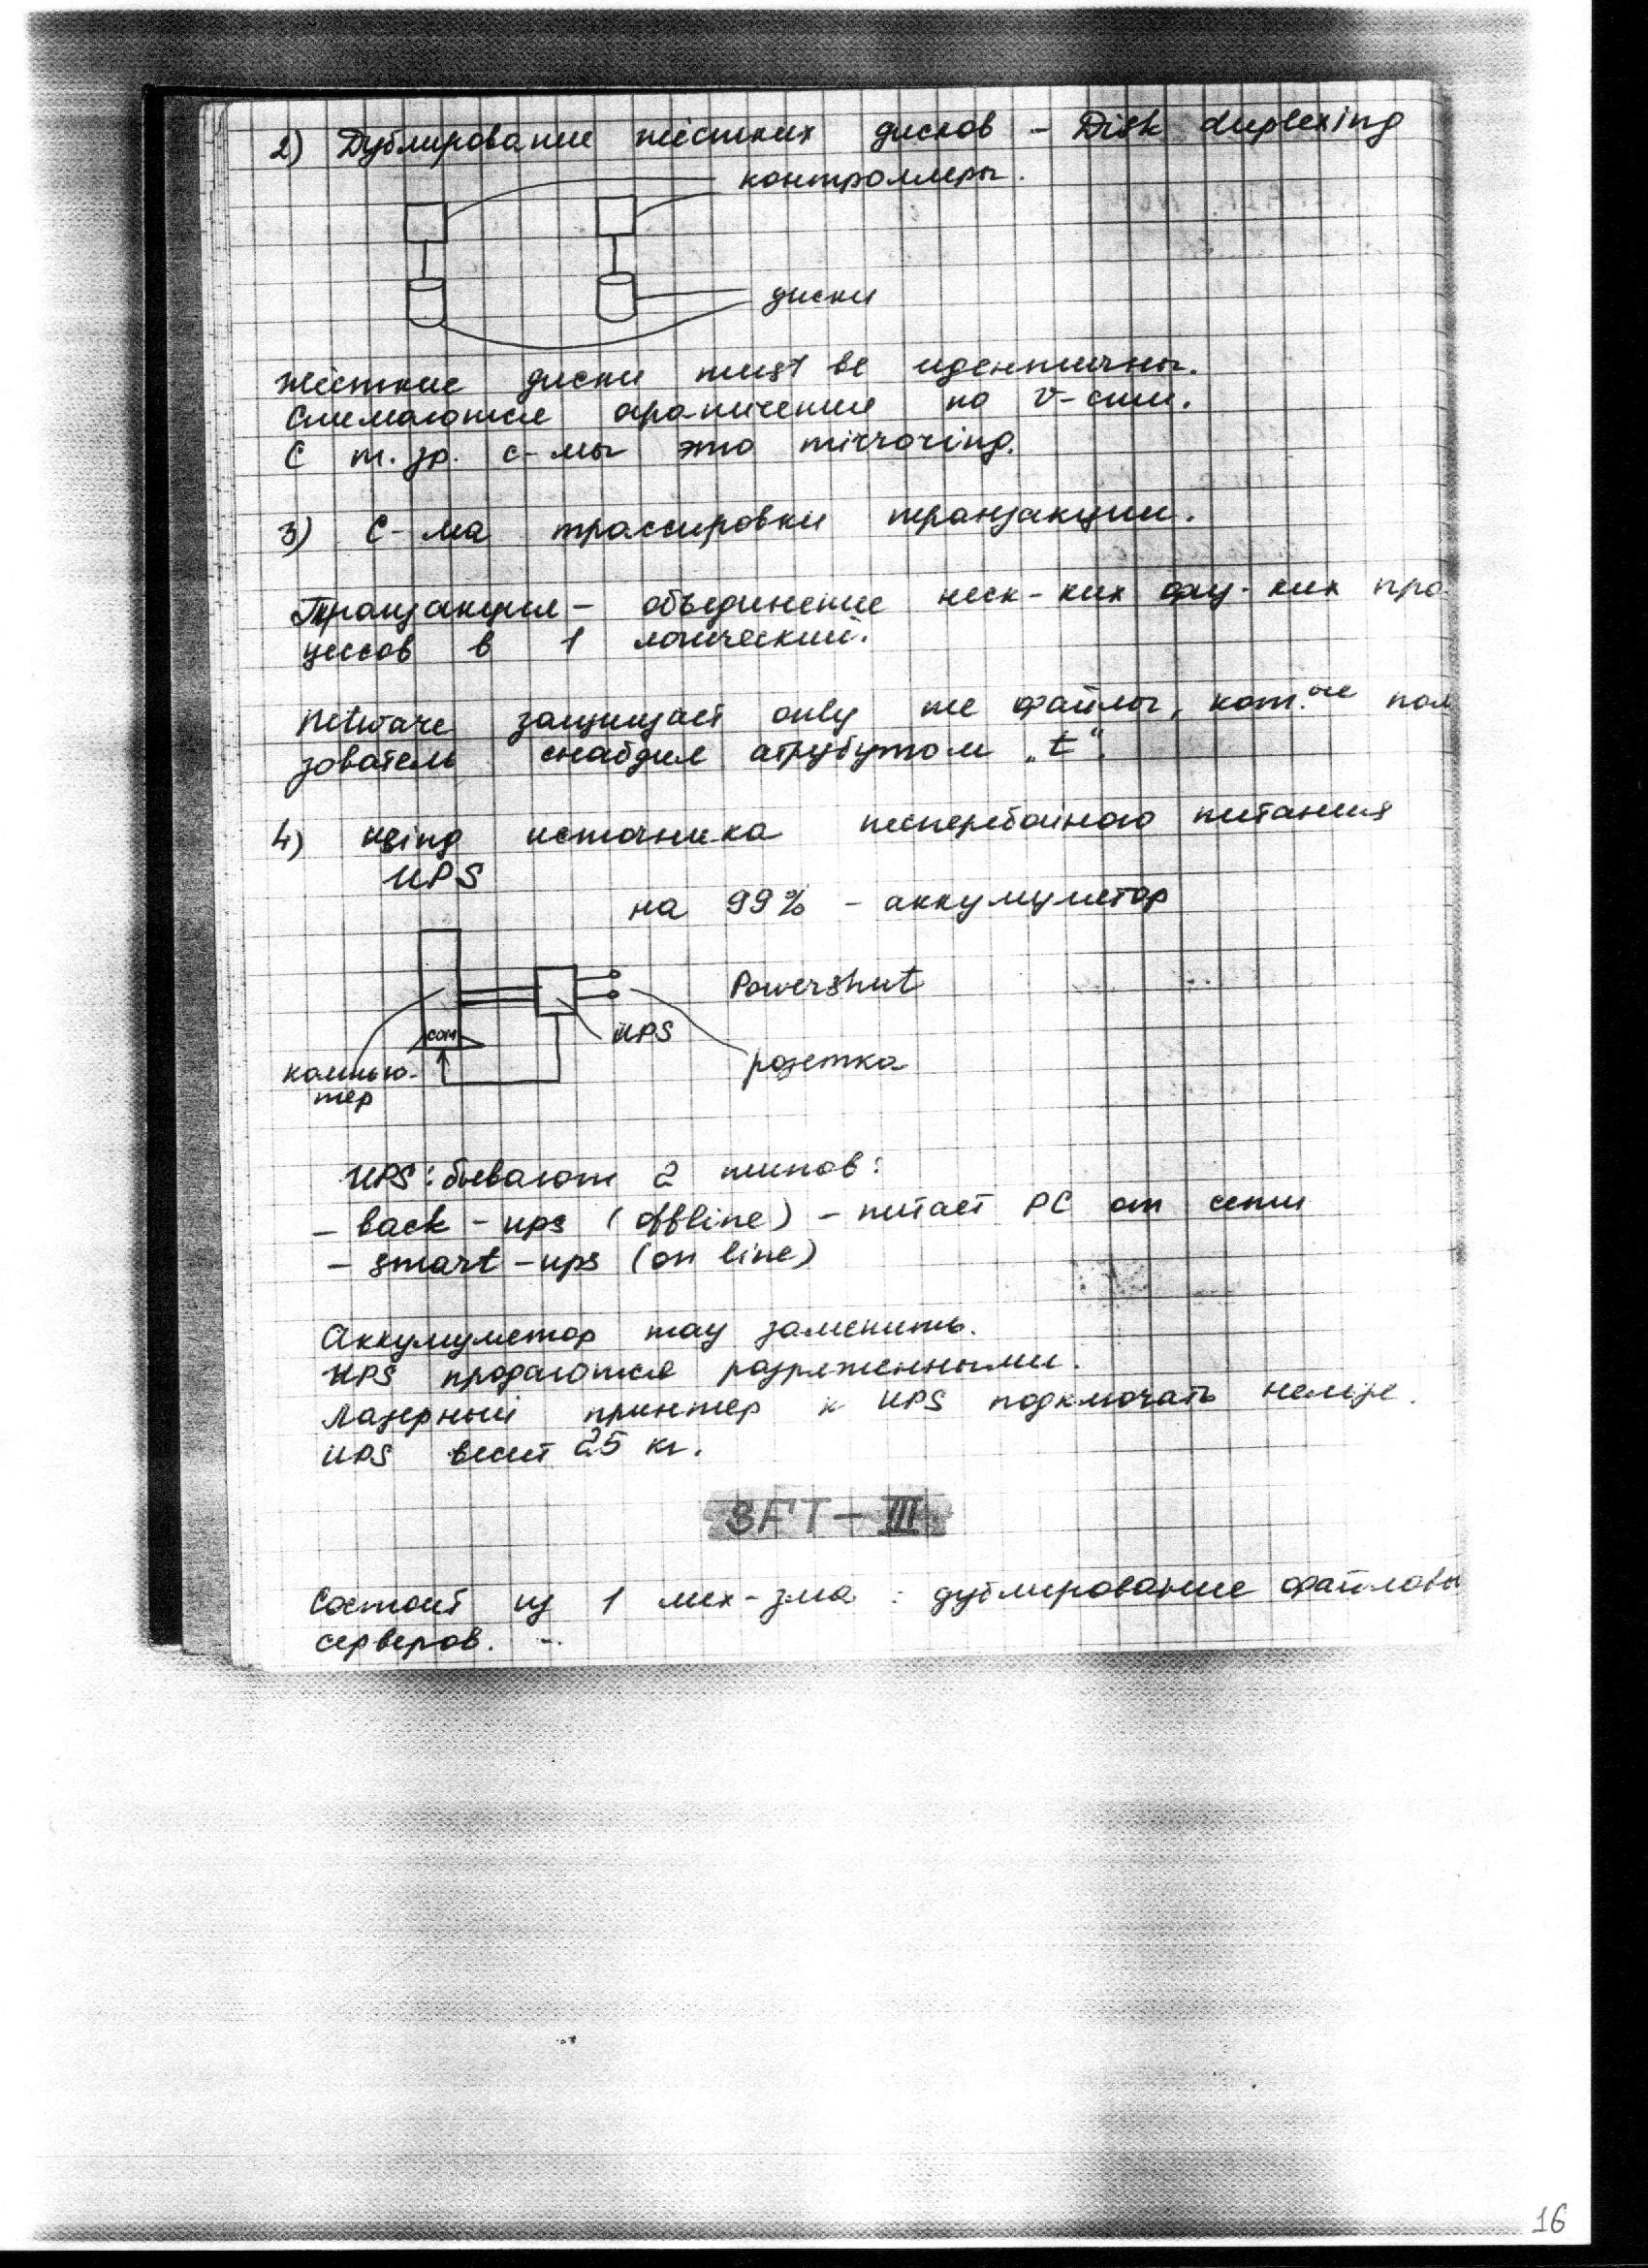 2) Дублирование жёстких дисков - Disk duplexing
контроллеры.
диски
Жёсткие диски must be идентичны.
Снимаются ограничения по v-сти.
С т. зр. с-мы это mirroring.
3) С-ма трассировки транзакции.
Транзакция - объединение неск-ких физ-ких про-
цессов в 1 логический.
Netware защищает only те файлы, кот.ые поль
зователь снабдил атрибутом „t“.
4) using источника бесперебойного питания
UPS
на 99% - аккумулятор
Powershut
COM
UPS
розетка
компью-
тер
UPS: бывают 2 типов:
- back - ups (offline) - питает PC от сети
- smart - ups (on line)
Аккумулятор may заменить.
UPS продаются разряженными.
Лазерный принтер к UPS подключать нельзя.
UPS весит 25 кг.
SFT - III
Состоит из 1 мех-зма : дублирование файловы
серверов.
16